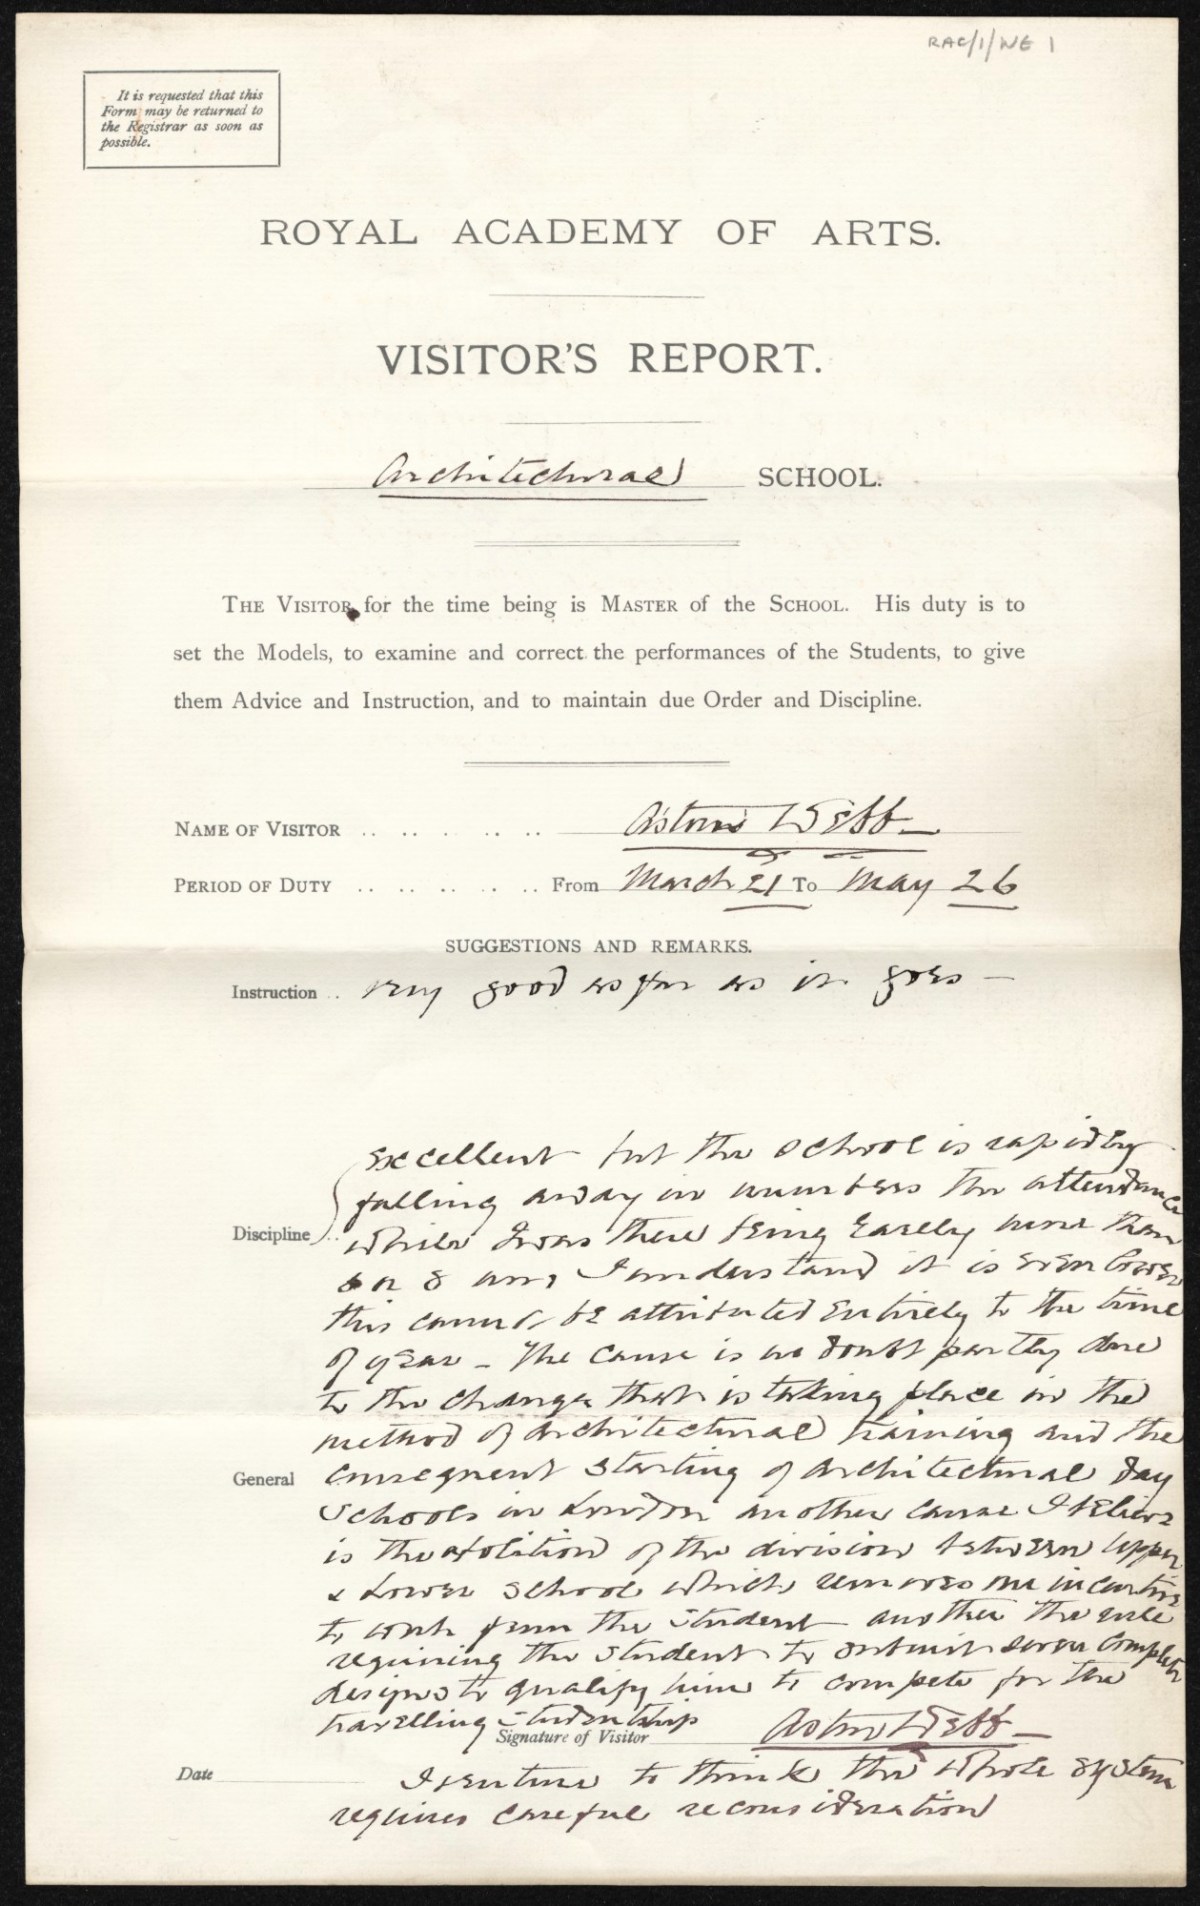 RAC/1/WE 1
It is requested that this
Form may be returned to
the Registrar as soon as
possible.
ROYAL ACADEMY OF ARTS.
VISITOR'S REPORT.
Architectural SCHOOL.
THE VISITOR for the time being is MASTER of the SCHOOL. His duty is to
set the Models, to examine and correct the performances of the Students, to give
them Advice and Instruction, and to maintain due Order and Discipline.
NAME OF VISITOR .. .. . .. .. Aston Webb
PERIOD OF DUTY .. .. .. .. .. From March 21 To May 26
SUGGESTIONS AND REMARKS.
Instruction .. very good as far as it goes —
excellent but the school is rapidly
falling away in numbers the attendance
Discipline .. while I was there being barely more than
6 or 8 and I understand it is even lower
this cannot be attributed entirely to the time
of year - The cause is no doubt partly due
to the change that is taking place in the
method of architectural training and the
General consequent starting of architectural day
schools in London another cause I believe
is the abolition of the division between Upper
& Lower school which removes one incentive
to work from the student another the rule
requiring the student to submit seven complete
designs to qualify him to compete for the
travelling studentship
Signature of Visitor Aston Webb
Date
I venture to think the whole system
requires careful reconsideration